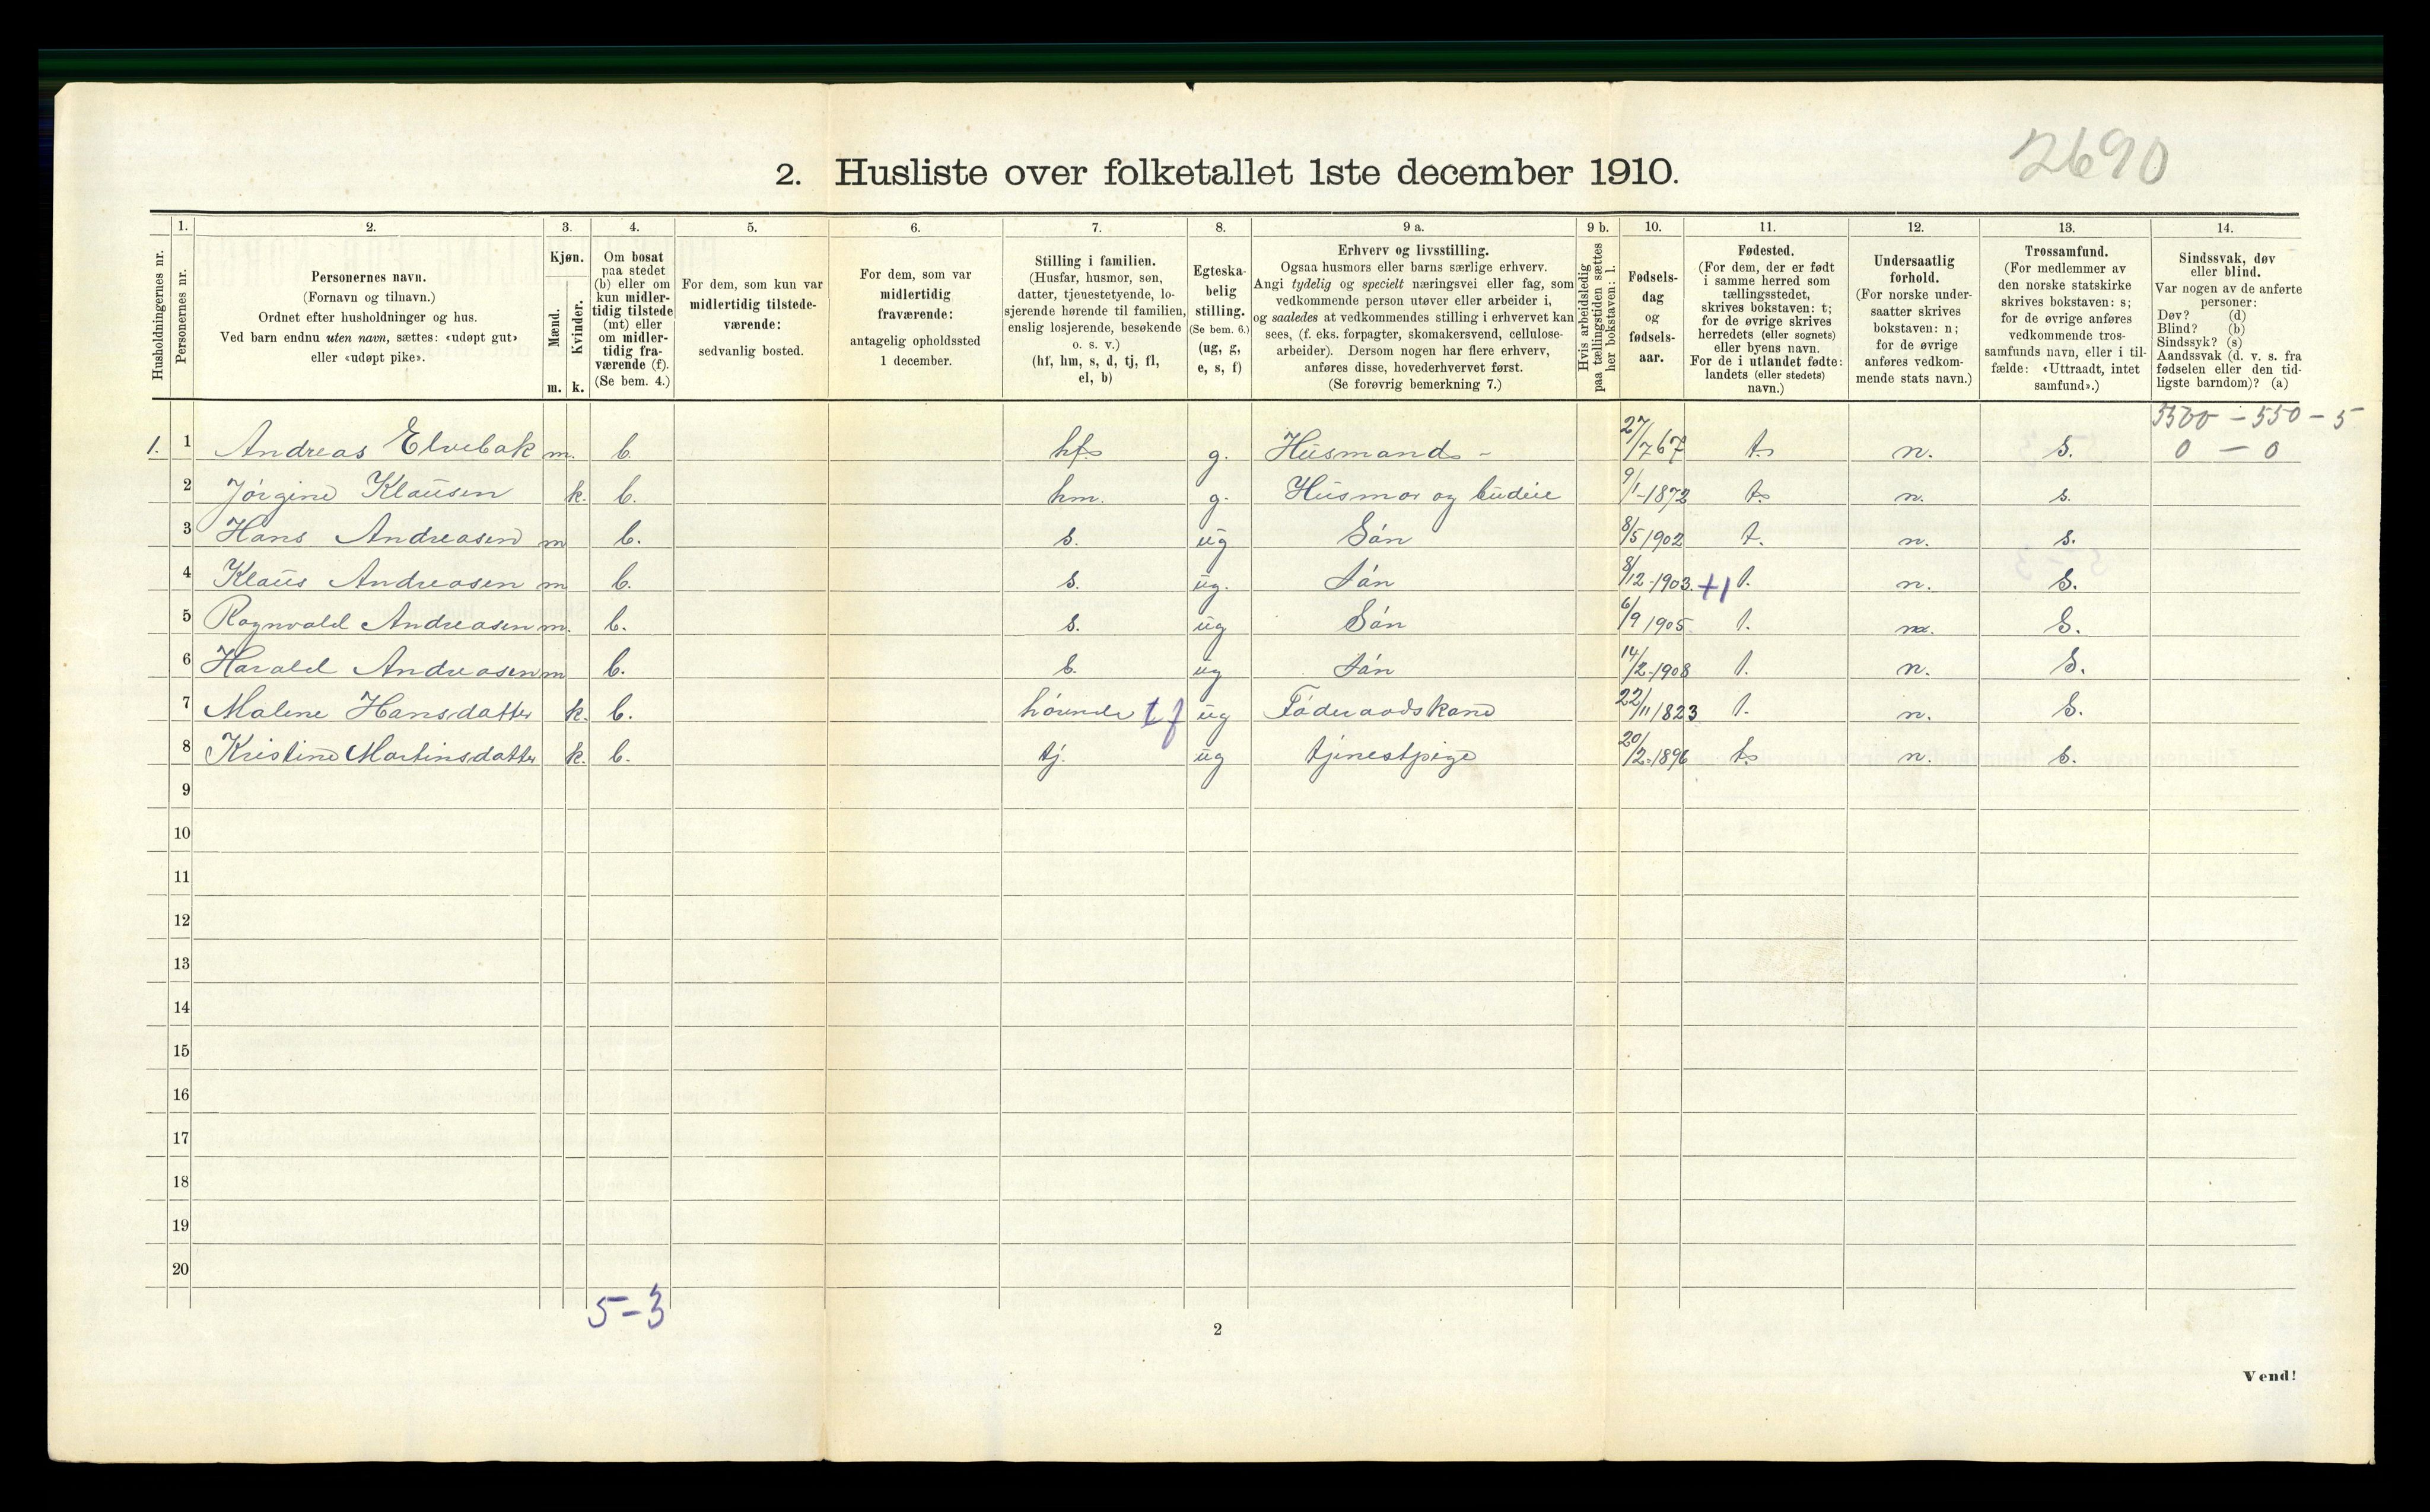 2690
2. Husliste over folketallet 1ste december 1910.
Husholdningernes nr.
1.
Personernes nr.
2.
Personernes navn.
(Fornavn og tilnavn.)
Ordnet efter husholdninger og hus.
Ved barn endnu uten navn, sættes: «udøpt gut»
eller «udøpt pike».
3.
Kjøn.
Mænd.
Kvinder.
m. k.
4.
Om bosat
paa stedet
(b) eller om
kun midler-
tidig tilstede
(mt) eller
om midler-
tidig fra-
værende (f).
(Se bem. 4.)
5.
For dem, som kun var
midlertidig tilstede-
værende:
sedvanlig bosted.
6.
For dem, som var
midlertidig
fraværende:
antagelig opholdssted
1 december.
7.
Stilling i familien.
(Husfar, husmor, søn,
datter, tjenestetyende, lo-
sjerende hørende til familien,
enslig losjerende, besøkende
o. s. v.)
(hf, hm, s, d, tj, fl,
el, b)
8.
Egteska-
belig
stilling.
(Se bem. 6.)
(ug, g,
e, s, f)
9 a.
Erhverv og livsstilling.
Ogsaa husmors eller barns særlige erhverv.
Angi tydelig og specielt næringsvei eller fag, som
vedkommende person utøver eller arbeider i,
og saaledes at vedkommendes stilling i erhvervet kan
sees, (f. eks. forpagter, skomakersvend, cellulose-
arbeider). Dersom nogen har flere erhverv,
anføres disse, hovederhvervet først.
(Se forøvrig bemerkning 7.)
9 b.
Hvis arbeidsledig
paa tællingstiden sættes
her bokstaven: l.
10.
Fødsels-
dag
og
fødsels-
aar.
11.
Fødested.
(For dem, der er født
i samme herred som
tællingsstedet,
skrives bokstaven: t;
for de øvrige skrives
herredets (eller sognets)
eller byens navn.
For de i utlandet fødte:
landets (eller stedets)
navn.)
12.
Undersaatlig
forhold.
(For norske under-
saatter skrives
bokstaven: n;
for de øvrige
anføres vedkom-
mende stats navn.)
13.
Trossamfund.
(For medlemmer av
den norske statskirke
skrives bokstaven: s;
for de øvrige anføres
vedkommende tros-
samfunds navn, eller i til-
fælde: «Uttraadt, intet
samfund».)
14.
Sindssvak, døv
eller blind.
Var nogen av de anførte
personer:
Døv? (d)
Blind? (b)
Sindssyk? (s)
Aandssvak (d. v. s. fra
fødselen eller den tid-
ligste barndom)? (a)
5500 - 550 - 5
1. 1 Andreas Elvebak m. b. hf g. Husmand - 27/7 67 t. n. S. 0 - 0
2 Jörgine Klausen k. b. hm. g. Husmor og budeie 9/1-1872 t. n. s.
3 Hans Andreasen m b. s. ug Sön 8/5 1902 t. n. s.
4 Klaus Andreasen m b. s. ug. Sön 8/12-1903. +1 t. n. S.
5 Ragnvald Andreasen m. b. s. ug Sön 6/9 1905 t. n. S.
6 Harald Andreasen m b. s. ug Sön 14/2-1908 t. n. S.
7 Malene Hansdatter k. b. hörende tf ug Föderaadskone 22/11 1823 t. n. S.
8 Kristine Martinsdatter k. b. tj. ug tjenestpige 20/2-1896 t. n. s.
9
10
11
12
13
14
15
16
17
18
19
20
5-3
2
Vend!